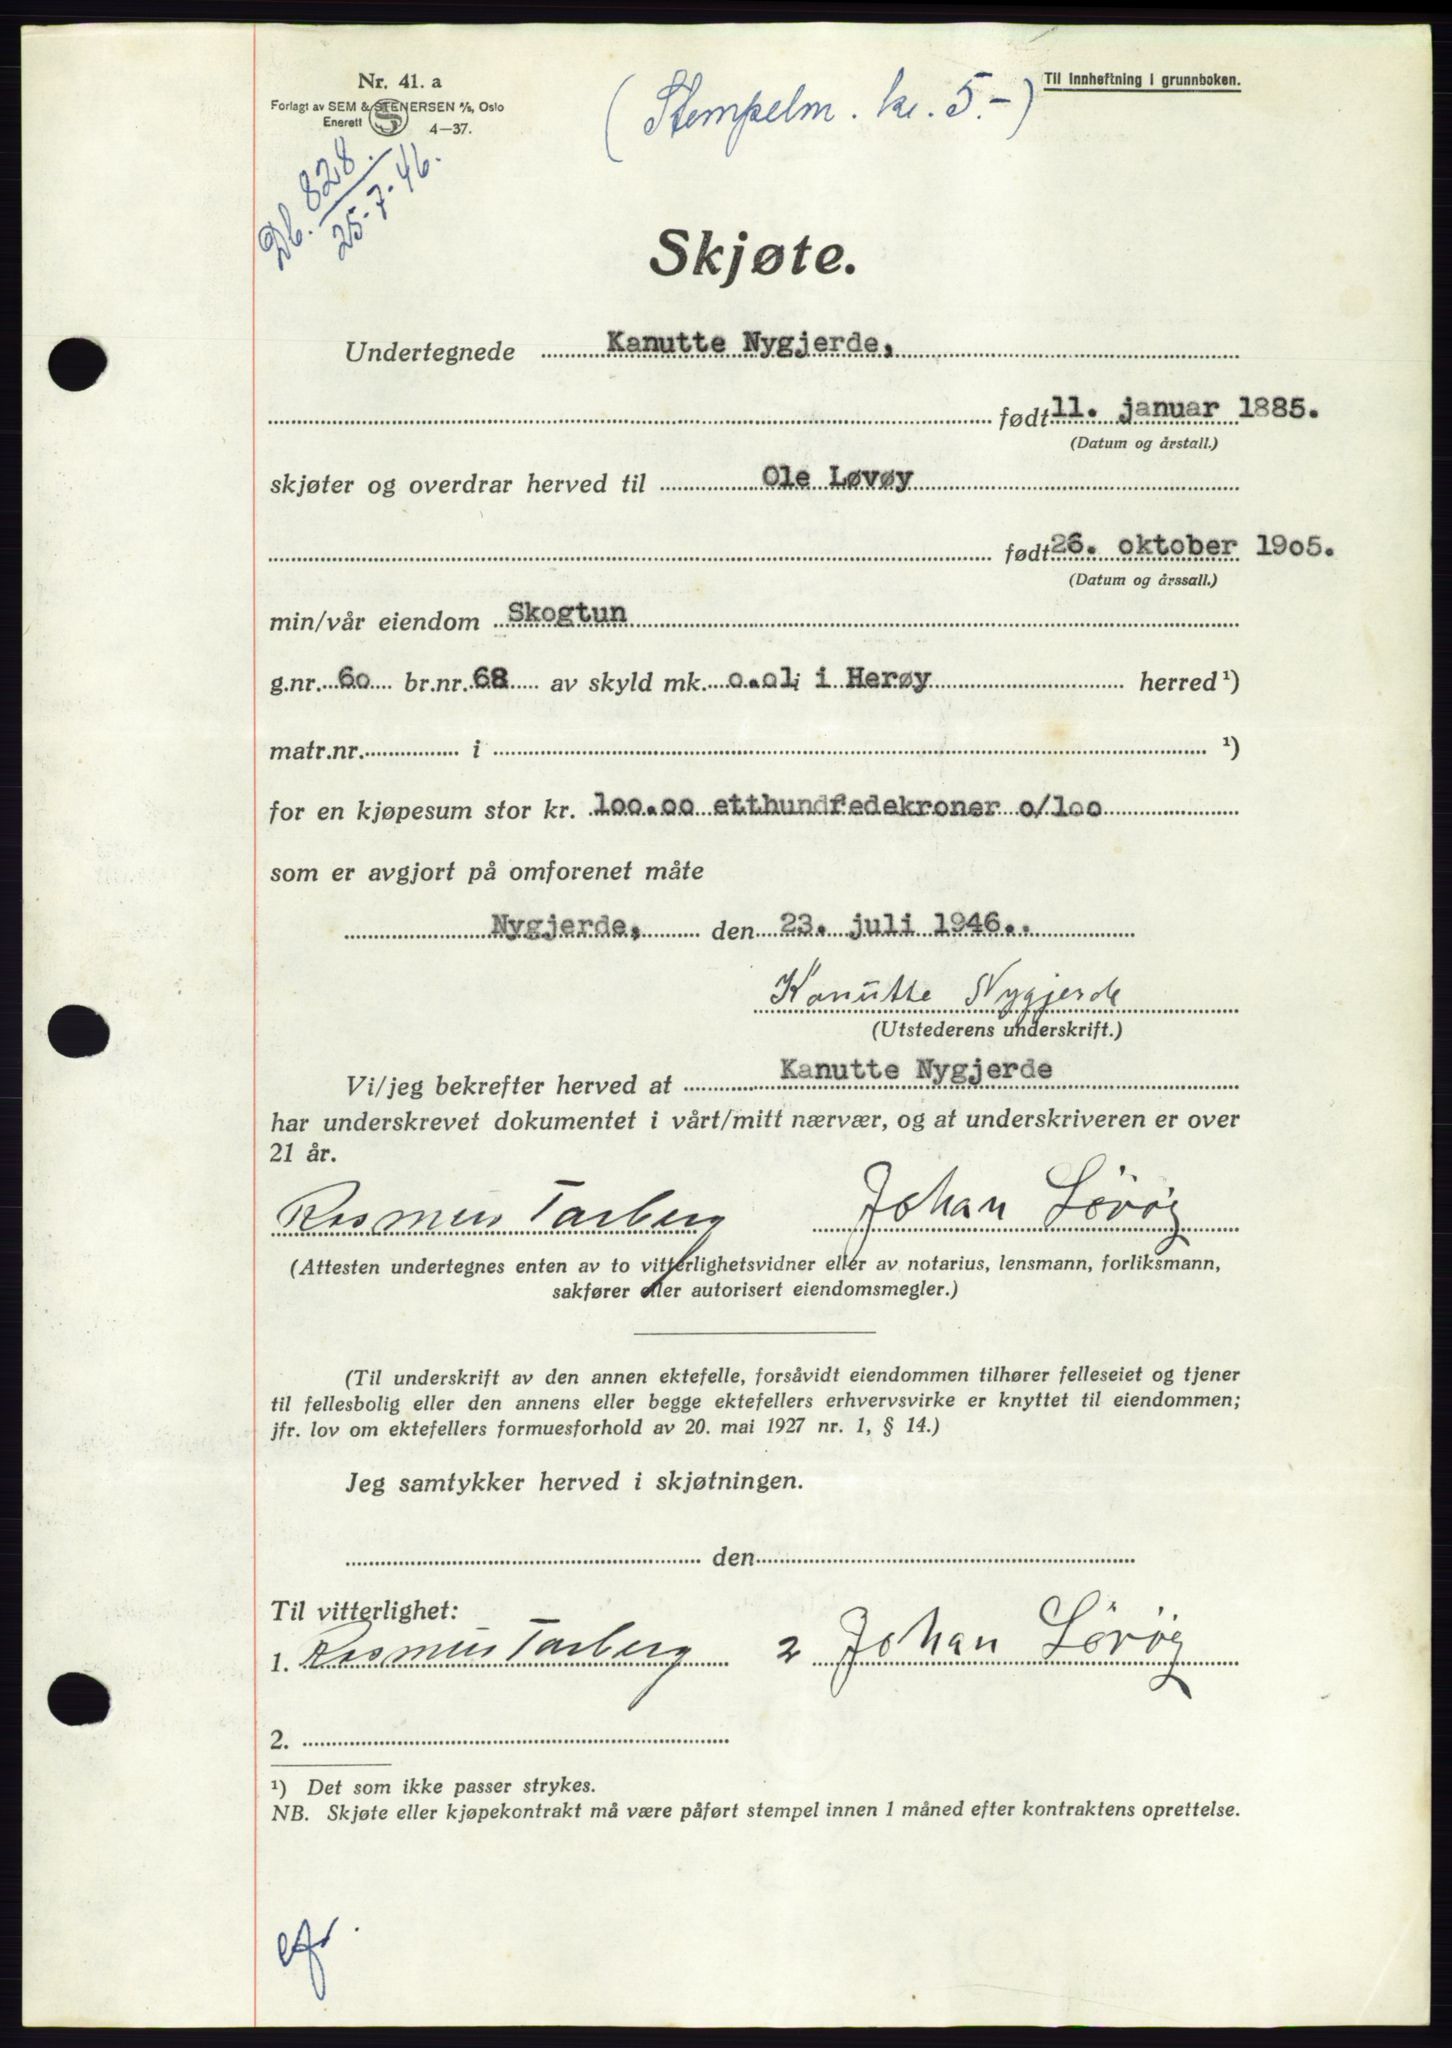 Nr. 41. a
Forlagt av SEM & STENERSEN A/S, Oslo
Enerett S 4—37.
Til innheftning i grunnboken.
(Stempelm. kr. 5.-)
Db. 828.
25-7-46.
Skjøte.
Undertegnede Kanutte Nygjerde,
født 11. januar 1885.
(Datum og årstall.)
skjøter og overdrar herved til Ole Løvøy
født 26. oktober 1905.
(Datum og årssall.)
min/vår eiendom Skogtun
g.nr. 60 br.nr. 68 av skyld mk. o.ol; i Herøy herred ¹)
matr.nr. i ¹)
for en kjøpesum stor kr. loo.oo etthundredekroner o/loo
som er avgjort på omforenet måte
Nygjerde, den 23. juli 1946..
Kanutte Nygjerde
(Utstederens underskrift.)
Vi/jeg bekrefter herved at Kanutte Nygjerde
har underskrevet dokumentet i vårt/mitt nærvær, og at underskriveren er over
21 år.
Rasmus Tarberg Johan Løvøy
(Attesten undertegnes enten av to vitterlighetsvidner eller av notarius, lensmann, forliksmann,
sakfører eller autorisert eiendomsmegler.)
(Til underskrift av den annen ektefelle, forsåvidt eiendommen tilhører felleseiet og tjener
til fellesbolig eller den annens eller begge ektefellers erhvervsvirke er knyttet til eiendommen;
jfr. lov om ektefellers formuesforhold av 20. mai 1927 nr. 1, § 14.)
Jeg samtykker herved i skjøtningen.
den
Til vitterlighet:
1. Rasmus Tarberg 2 Johan Løvøy
2.
¹) Det som ikke passer strykes.
NB. Skjøte eller kjøpekontrakt må være påført stempel innen 1 måned efter kontraktens oprettelse.